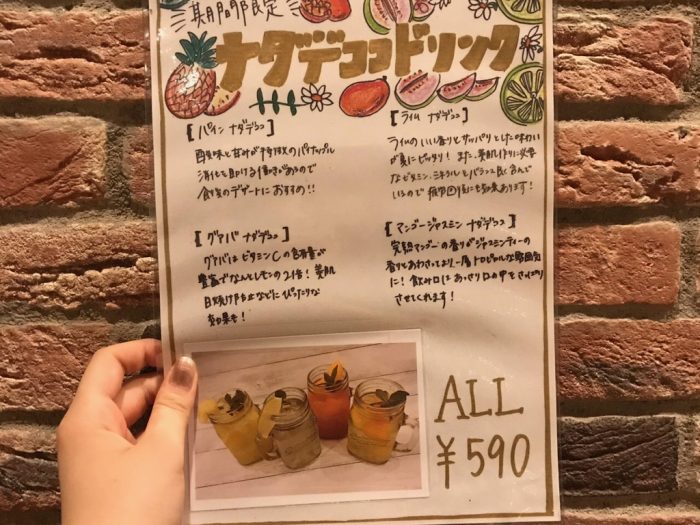 期間限定
ナタデココドリンク
[パイン ナタデココ]
酸味と甘みが特徴のパイナップル
消化を助ける働きがあるので
食後のデザートにおすすめ!!
[ライム ナタデココ]
ライムのいい香りとサッパリとした味わい
が夏にピッタリ! また、美肌作りに必要
なビタミン、ミネラルをバランス良く含んで
いるので 疲労回復にも効果あります!
[グァバ ナタデココ]
グァバはビタミンCの含有量が
豊富でなんとレモンの2倍! 美肌
日焼け防止などにぴったりな
効果も!
[マンゴージャスミン ナタデココ]
完熟マンゴーの香りがジャスミンティーの
香りとあわさってより一層トロピカルな雰囲気
に! 飲み口はあっさり口の中をさっぱり
させてくれます!
ALL
¥590